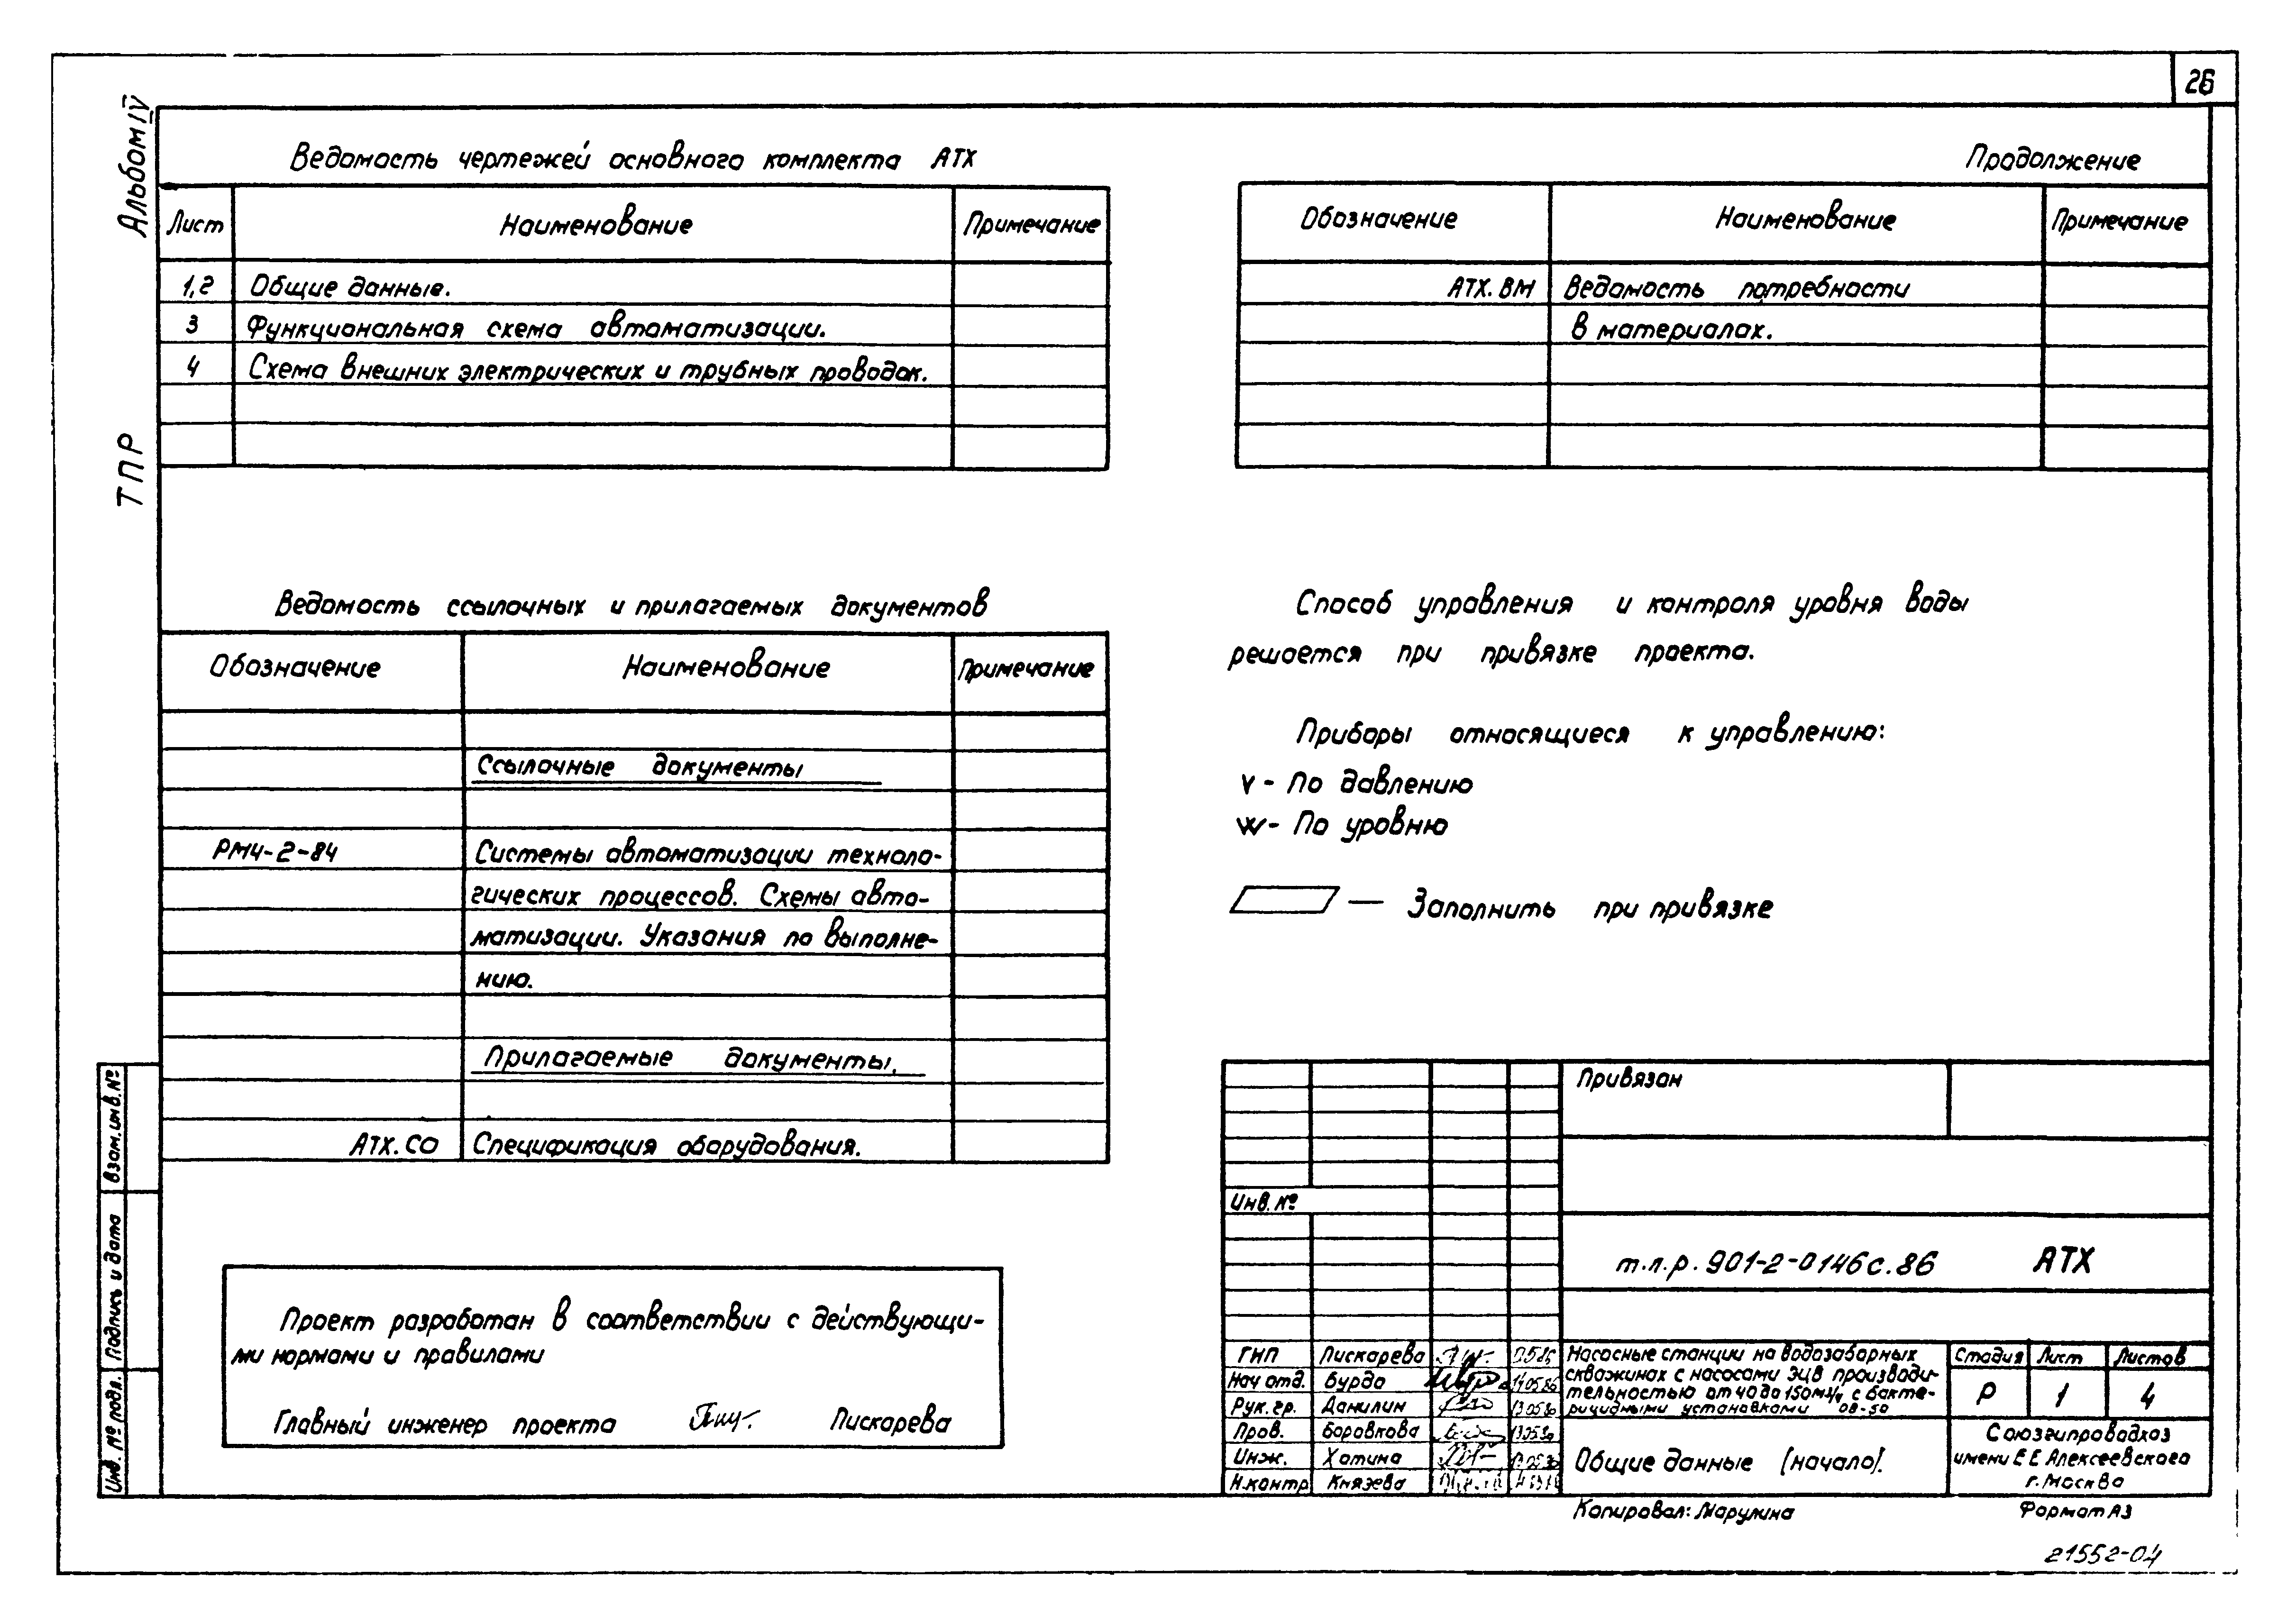 26
Альбом IV
ТПР
Ведомость чертежей основного комплекта АТХ
Лист Наименование Примечание
1,2 Общие данные.
3 Функциональная схема автоматизации.
4 Схема внешних электрических и трубных проводок.
Продолжение
Обозначение Наименование Примечание
АТХ.ВМ Ведомость потребности
в материалах.
Ведомость ссылочных и прилагаемых документов
Обозначение Наименование Примечание
Ссылочные документы
РМ4-2-84 Системы автоматизации техноло-
гических процессов. Схемы авто-
матизации. Указания по выполне-
нию.
Прилагаемые документы.
АТХ.СО Спецификация оборудования.
Способ управления и контроля уровня воды
решается при привязке проекта.
Приборы относящиеся к управлению:
v - По давлению
w - По уровню
— Заполнить при привязке
Проект разработан в соответствии с действующи-
ми нормами и правилами
Главный инженер проекта Пискарева
Взам.инв.№
Подпись и дата
Инв. № подл.
Привязан
Инв. №
т.п.р. 901-2-0146с.86 АТХ
ГИП Пискарева
Нач отд. Бурда 14.05.86
Рук. гр. Данилин
Пров. Боровкова
Инж. Хотина
Н.контр Князева
Насосные станции на водозаборных
скважинах с насосами ЭЦВ производи-
тельностью от 40 до 150м3/ч с бакте-
рицидными установками ОВ-50
Стадия Лист Листов
Р 1 4
Общие данные (начало).
Союзгипроводхоз
имени Е Е Алексеевского
г. Москва
Копировал: Марулина
Формат А3
21552-04